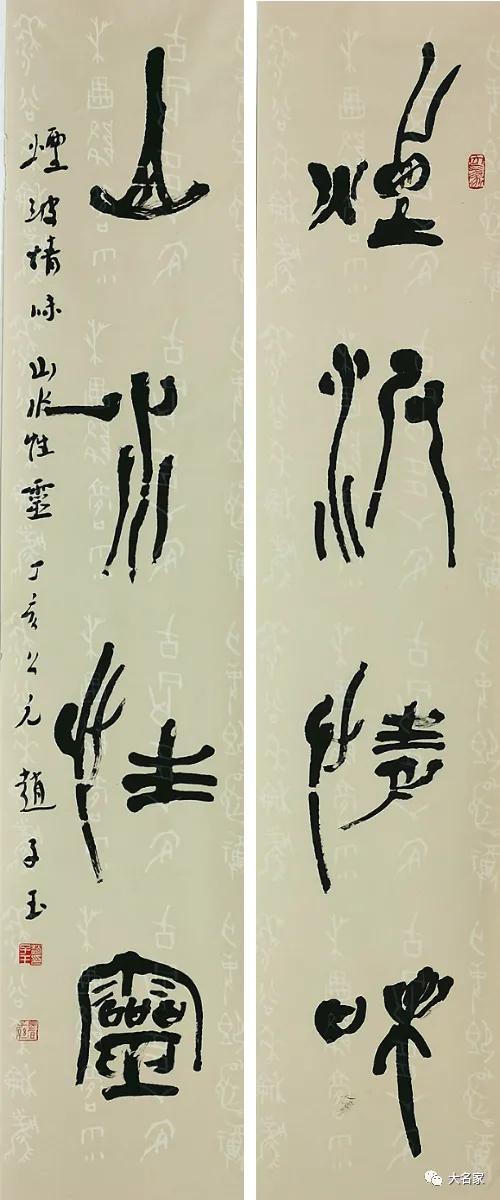 煙波情味
山水性靈
煙波情味山水性靈丁亥公元趙子玉
大名家